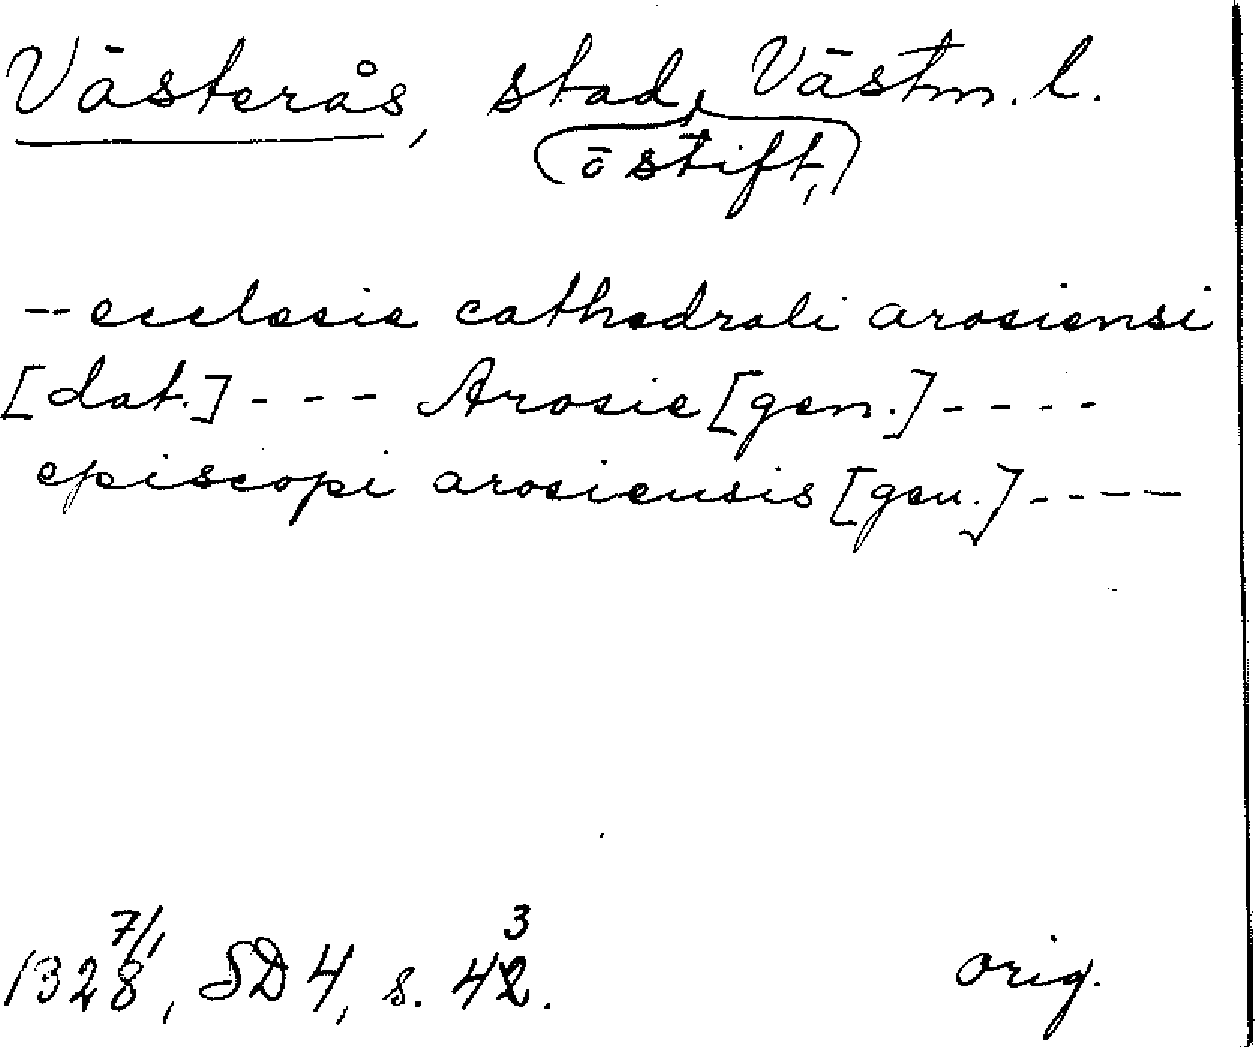 Västerås, stad, Västm. l.
(o stift,)
-- ecclesie cathedrali arosiensi
[dat.] - - - Arosie [gen.] - - - -
episcopi arosiensis [gen.] - - - -
1328 7/1, SD 4, s. 43.
orig.